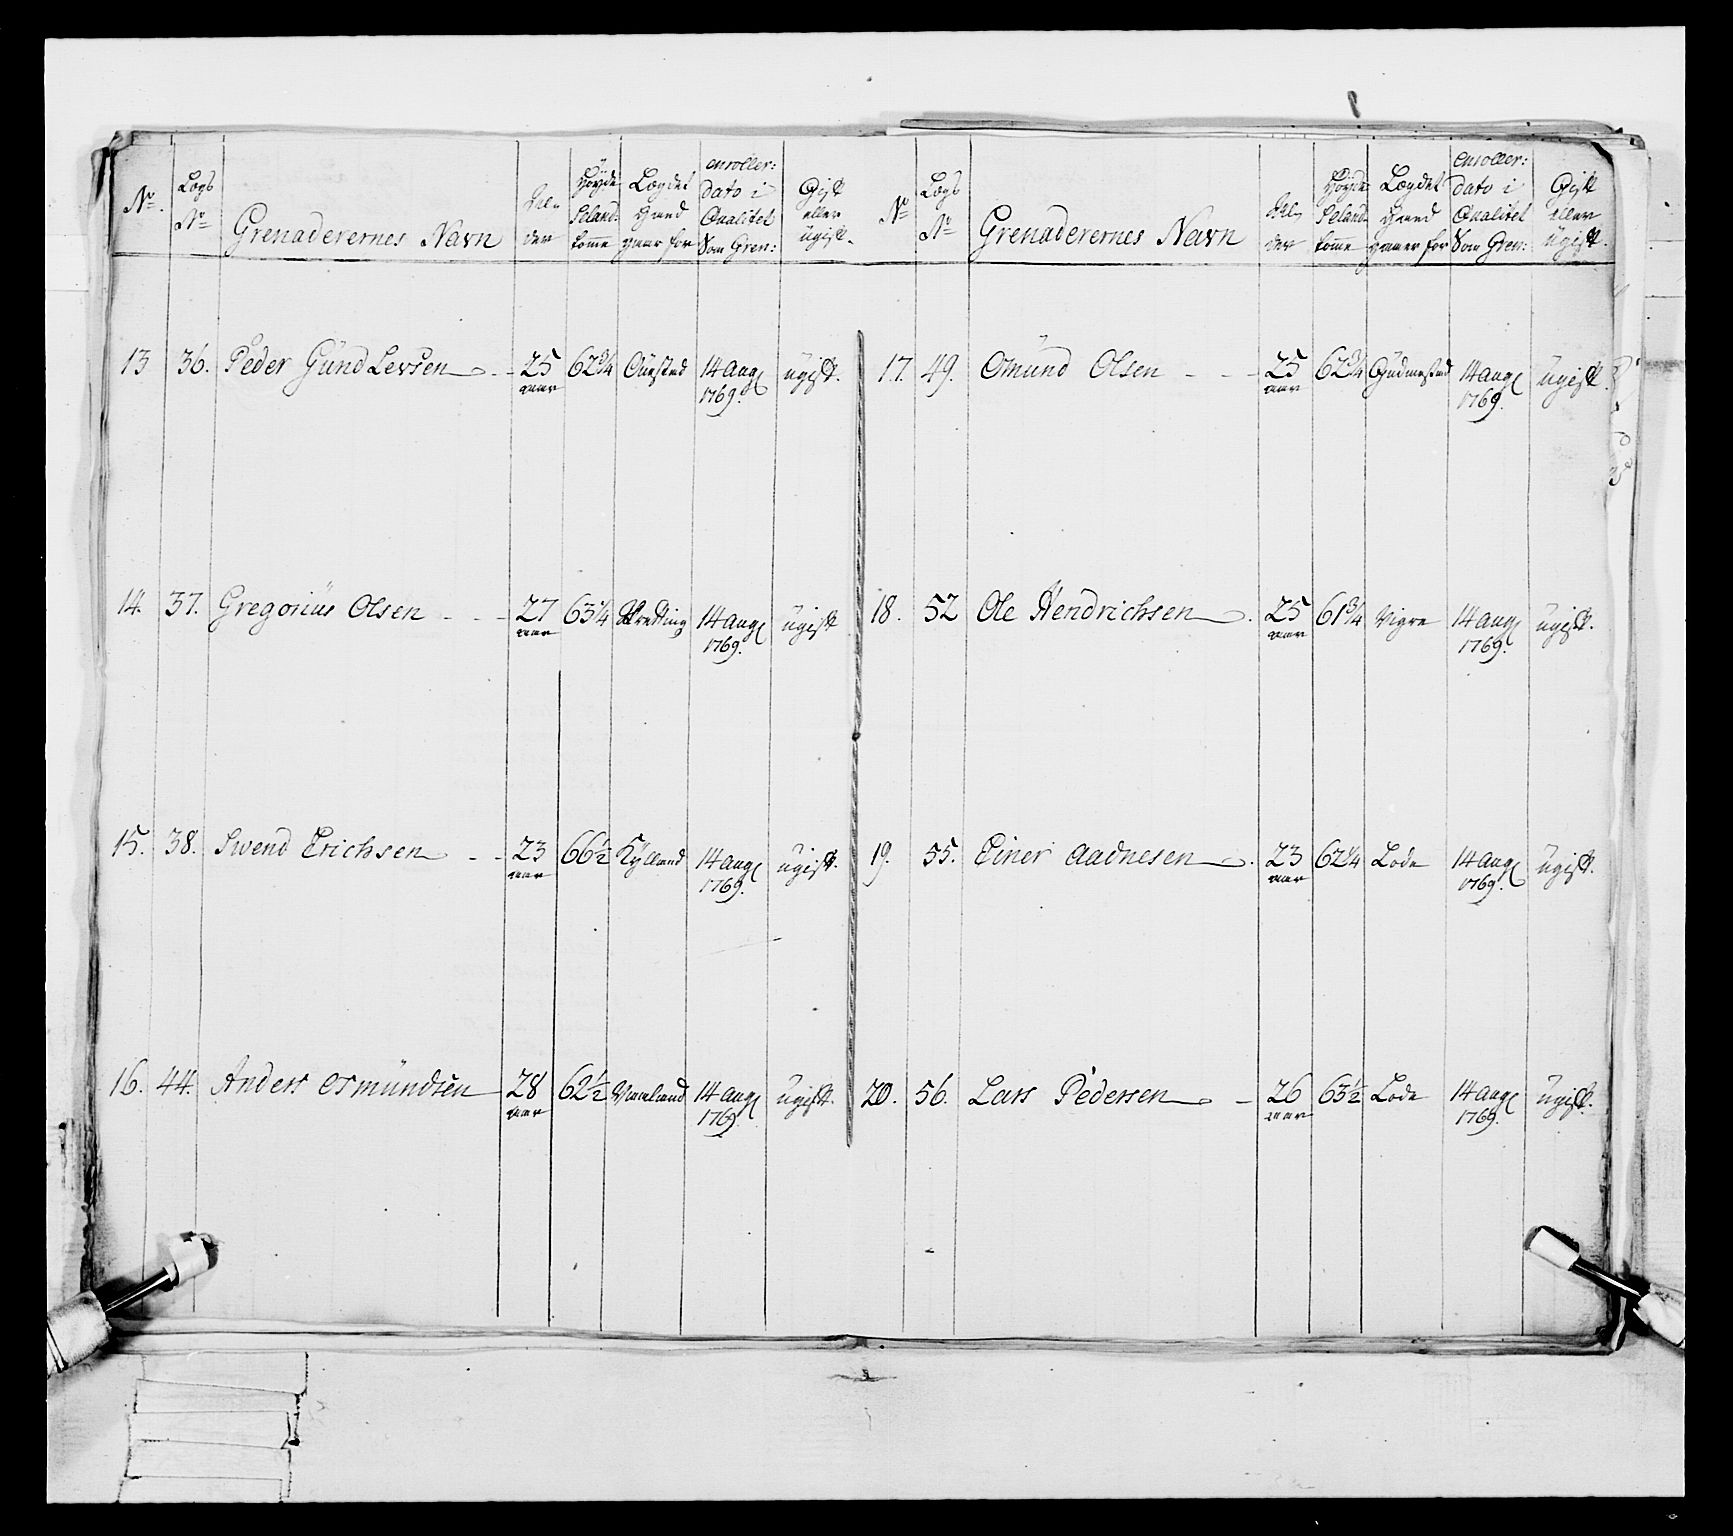 No. Lægs No Grenaderernes Navn Al- der Höyde Seland: tomme Lægdet Hand gaar for enroller: dato i Qualitet Som Gren: Gift eller ügift.
13 36. Peder Gündlersen 25 aar 62¾ 14 Aug 1769. ügift.
14. 37. Gregoriüs Olsen 27 aar 63¼ 14 Aug 1769. ügift
15. 38. Swend Erichsen 23 aar 66½ Kÿlland 14 Aug 1769. ügift.
16. 44. Anders Osmündsen 28 aar 62½ 14 Aug 1769. ügift.
No Lægs No Grenaderernes Navn Al- der Höyde Seland: tomme Lægdet Hand gaaer for enroller: dato i Qualitet Som Gren: Gift eller ügift.
17. 49. Omünd Olsen 25 aar 62¾ Güdmestad 14 Aug 1769. ügift.
18. 52 Ole Hendrichsen 25 aar 61¾ Vigre 14 Aug 1769. ügift.
19. 55. Einer Aadnesen 23 aar 62¼ Lode 14 Aug 1769. ügift.
20. 56. Lars Pedersen 26 aar 63½ Lode 14 Aug 1769. ügift.